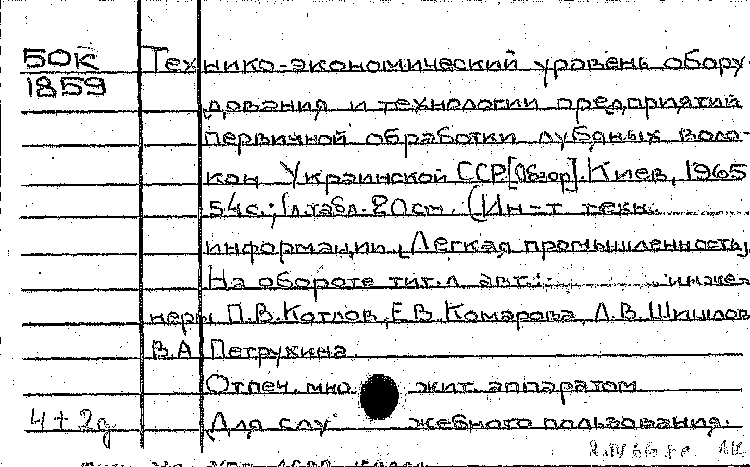 50к Технико-экономический уровень обору-
1859
дования и технологии предприятий
первичной обработки лубяных воло-
кон Украинской ССР [Обзор]. Киев, 1965
54с.; 1л.табл. 20см. (Ин-т техн.
информации. Легкая промышленность)
На обороте тит.л. авт.: инже-
неры П.В.Котлов, Е.В. Комарова, Л.В. Шишлов
В.А Петрухина
Отпеч. мно жит. аппаратом
4+2д Для слу жебного пользования.